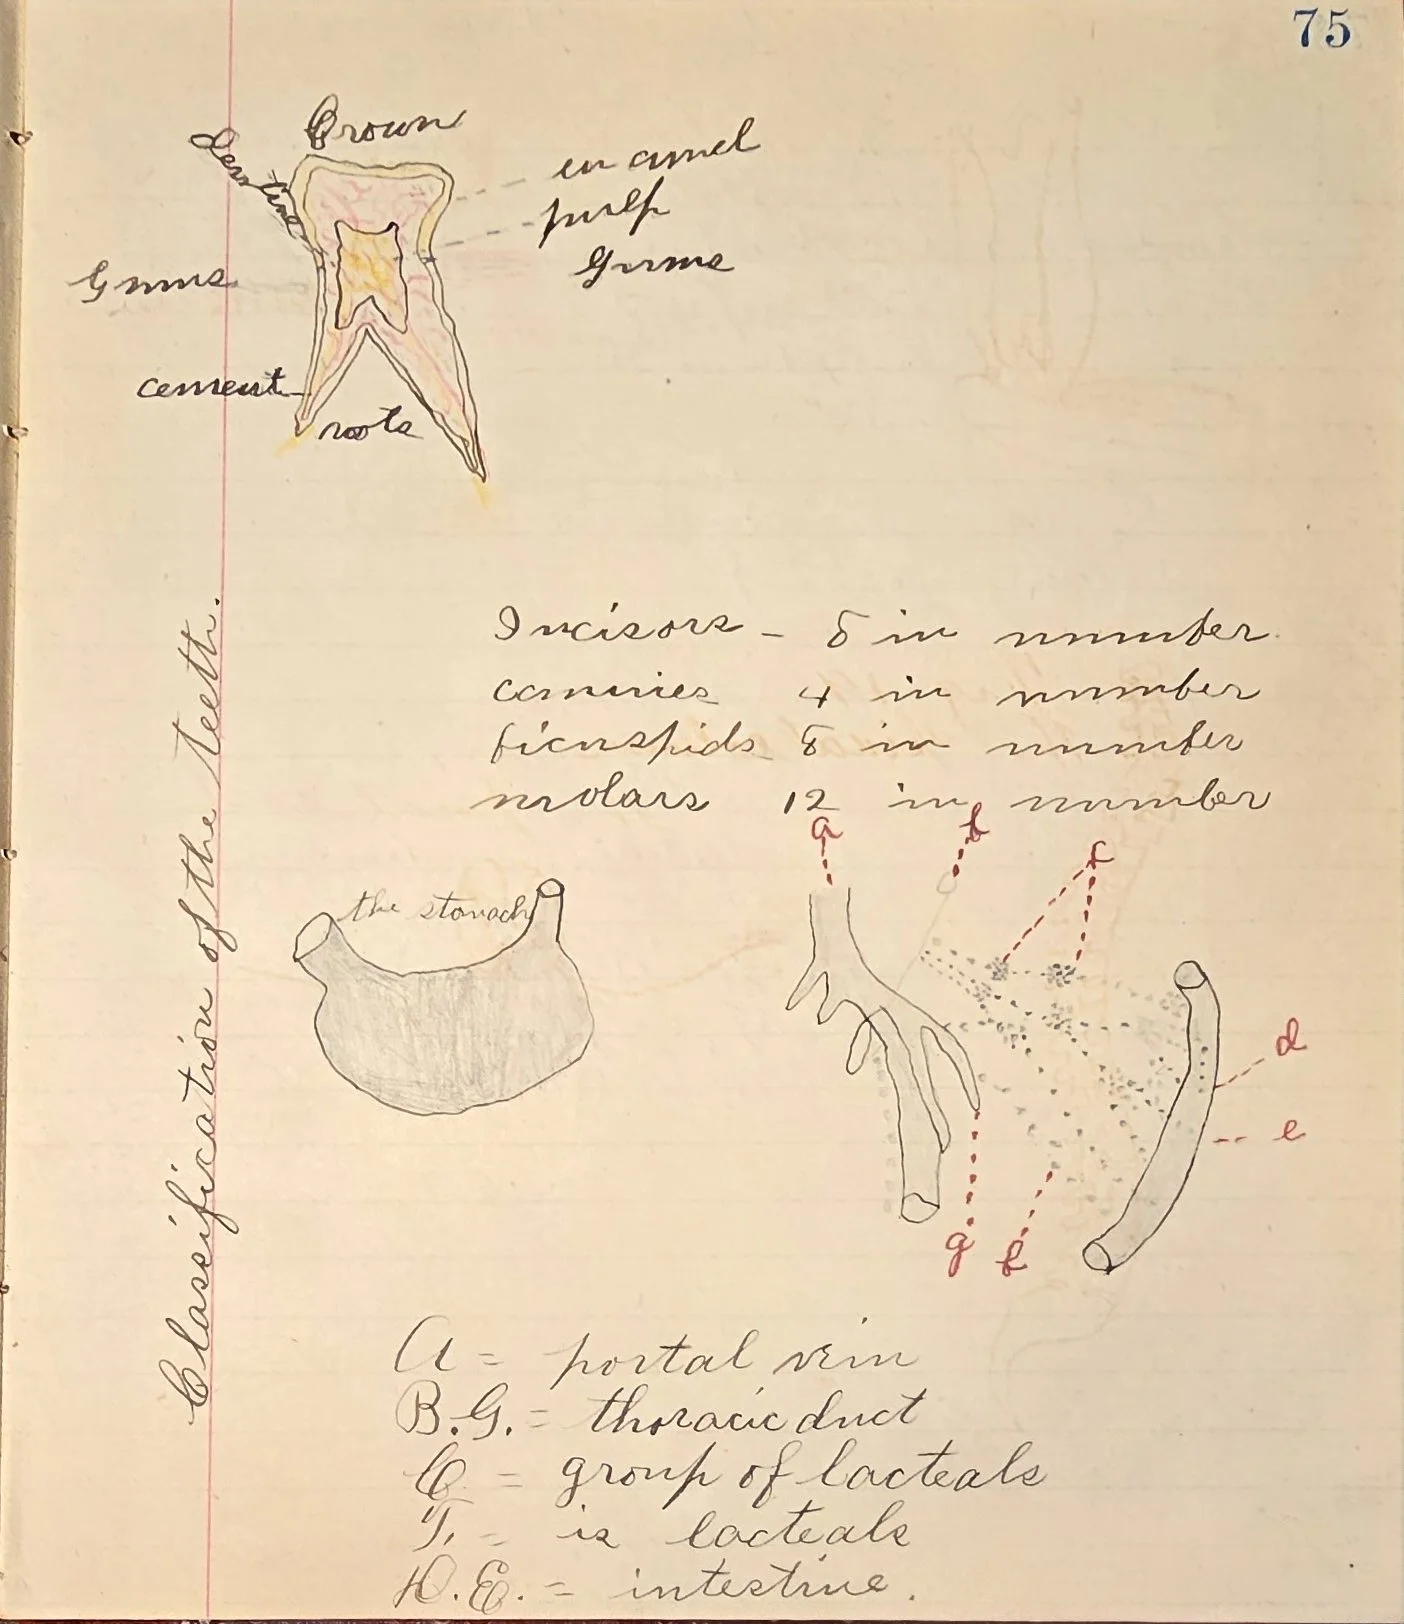 75
Crown
Dentine
enamel
pulp
Gums
Gums
cement
roots
Classification of the teeth.
Incisors - 8 in number.
cannies 4 in number
bicuspids 8 in number
molars 12 in number
a
b
c
the stomach
d
e
g
f
A = portal vein
B.G. = thoracic duct
C = group of lacteals
F. = is lacteals
D.E. = intestine.